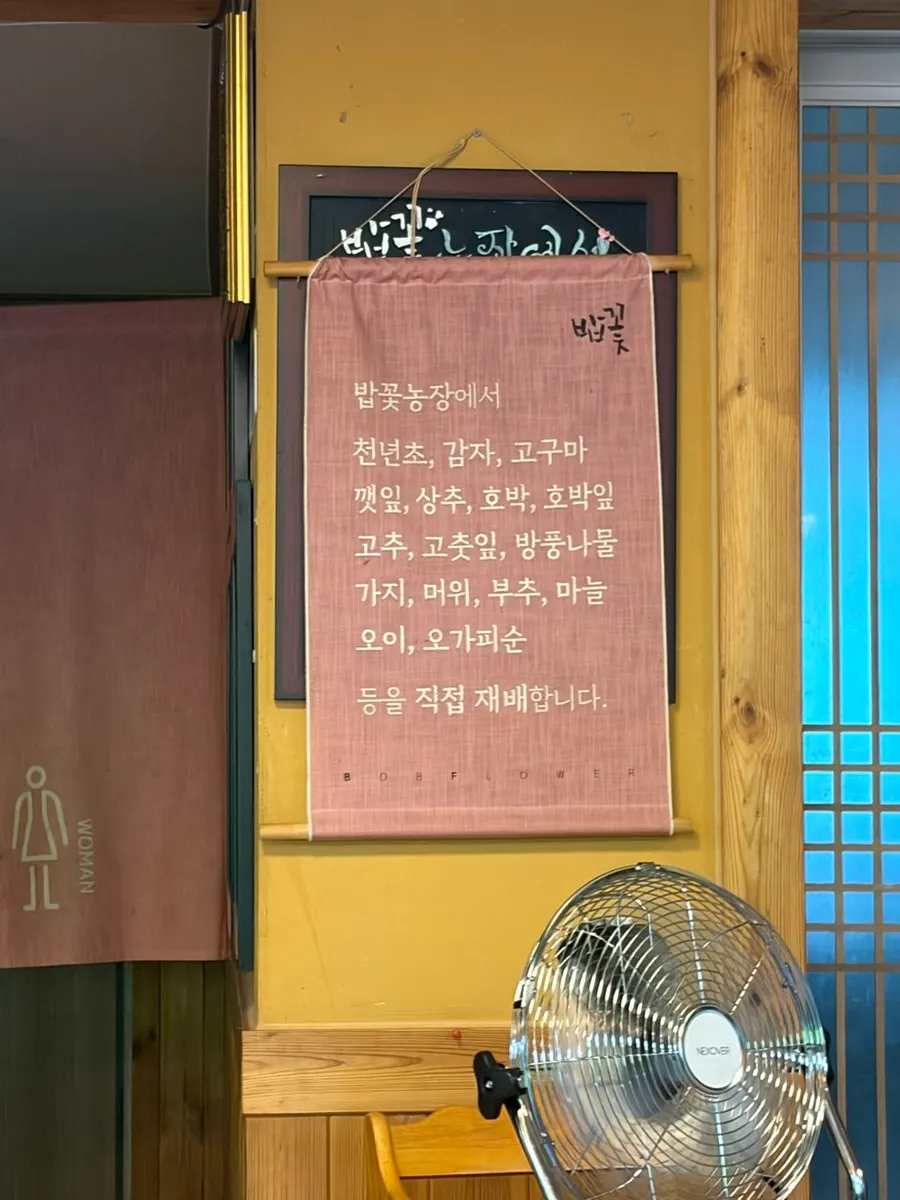 밥꽃농장에서
밥꽃
밥꽃농장에서
천년초, 감자, 고구마
깻잎, 상추, 호박, 호박잎
고추, 고춧잎, 방풍나물
가지, 머위, 부추, 마늘
오이, 오가피순
등을 직접 재배합니다.
BOBFLOWER
WOMAN
NEXOVER